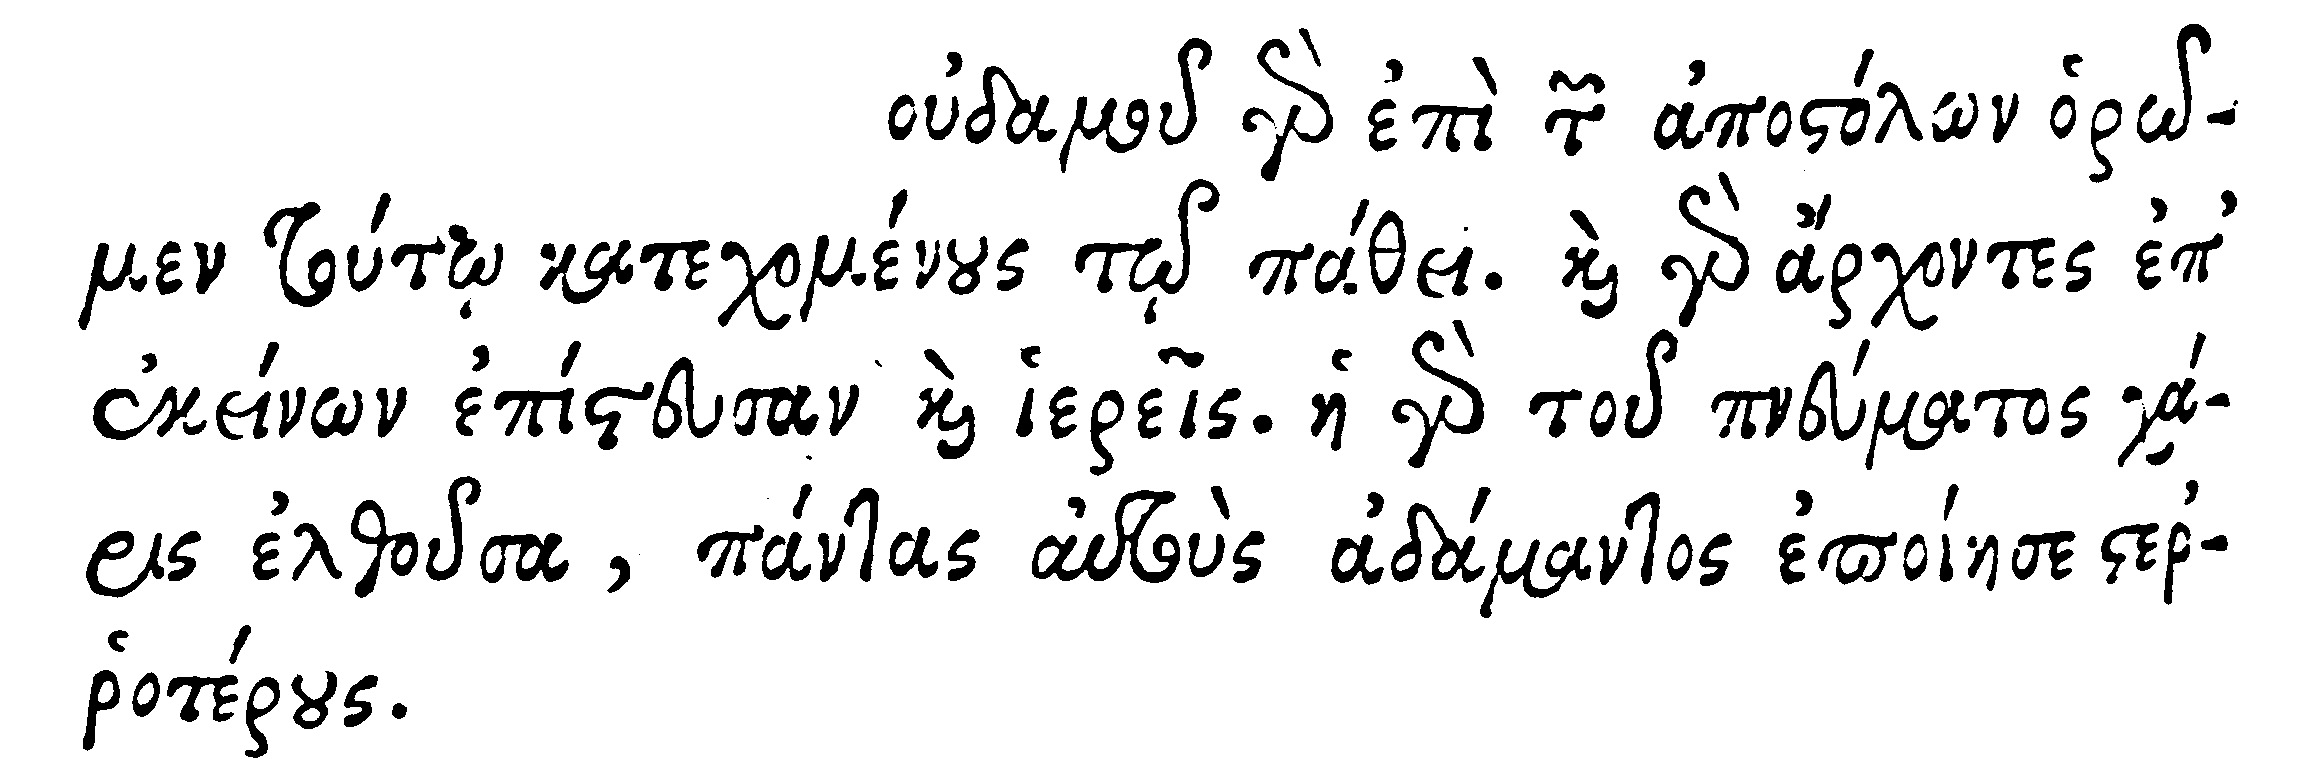 οὐδαμοῦ γὰρ ἐπὶ τῶν ἀποστόλων ὁρῶ-
μεν τούτῳ κατεχομένους τῷ πάθει. καὶ γὰρ ἄρχοντες ἐπ'
ἐκείνων ἐπίστευσαν καὶ ἱερεῖς. ἡ γὰρ τοῦ πνεύματος χά-
ρις ἐλθοῦσα, πάντας αὐτοὺς ἀδάμαντος ἐποίησε στερ-
ῥοτέρους.